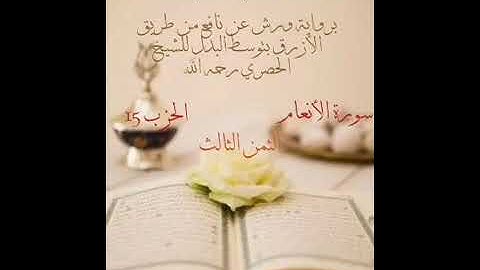 برواية ورش عن نافع من طريق
الأزرق بتوسط البدل للشيخ
الحصري رحمه الله
سورة الأنعام الحزب 15
الثمن الثالث